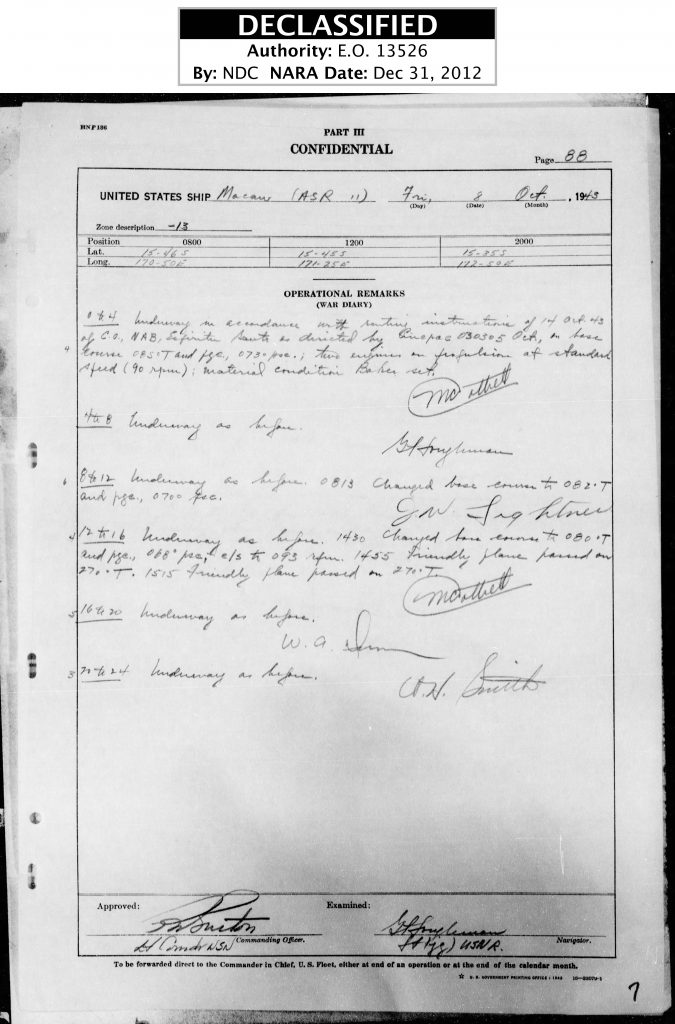 DECLASSIFIED
Authority: E.O. 13526
By: NDC NARA Date: Dec 31, 2012
HNP 136
PART III
CONFIDENTIAL
Page 88
UNITED STATES SHIP Macaw (ASR 11) Fri, 8 Oct. , 1943
(Day) (Date) (Month)
Zone description -13
Position 0800 1200 2000
Lat. 15-46S 15-45S 15-35S
Long. 170-50E 171-25E 172-50E
OPERATIONAL REMARKS
(WAR DIARY)
0 to 4 Underway in accordance with routing instructions of 14 Oct. 43
of C.O., NAB, Espiritu Santo as directed by 030305 Oct., on base
4 course 085°T and pgc., 073° psc.; two engines on propulsion at standard
speed (90 rpm); material condition Baker set.
4 to 8 Underway as before.
6 8 to 12 Underway as before. 0813 Changed base course to 082°T
and pgc., 070° psc.
G.W. Lightner
5 12 to 16 Underway as before. 1430 Changed base course to 080°T
and pgc., 068° psc, c/s to 093 rpm. 1455 Friendly plane passed on
270°T. 1515 Friendly plane passed on 270°T
5 16 to 20 Underway as before.
W. A.
3 20 to 24 Underway as before.
H. Smith
Approved: Examined:
Lt Comdr USN Commanding Officer. Lt (jg) USNR. Navigator.
To be forwarded direct to the Commander in Chief, U. S. Fleet, either at end of an operation or at the end of the calendar month.
☆ U. S. GOVERNMENT PRINTING OFFICE : 1943
7